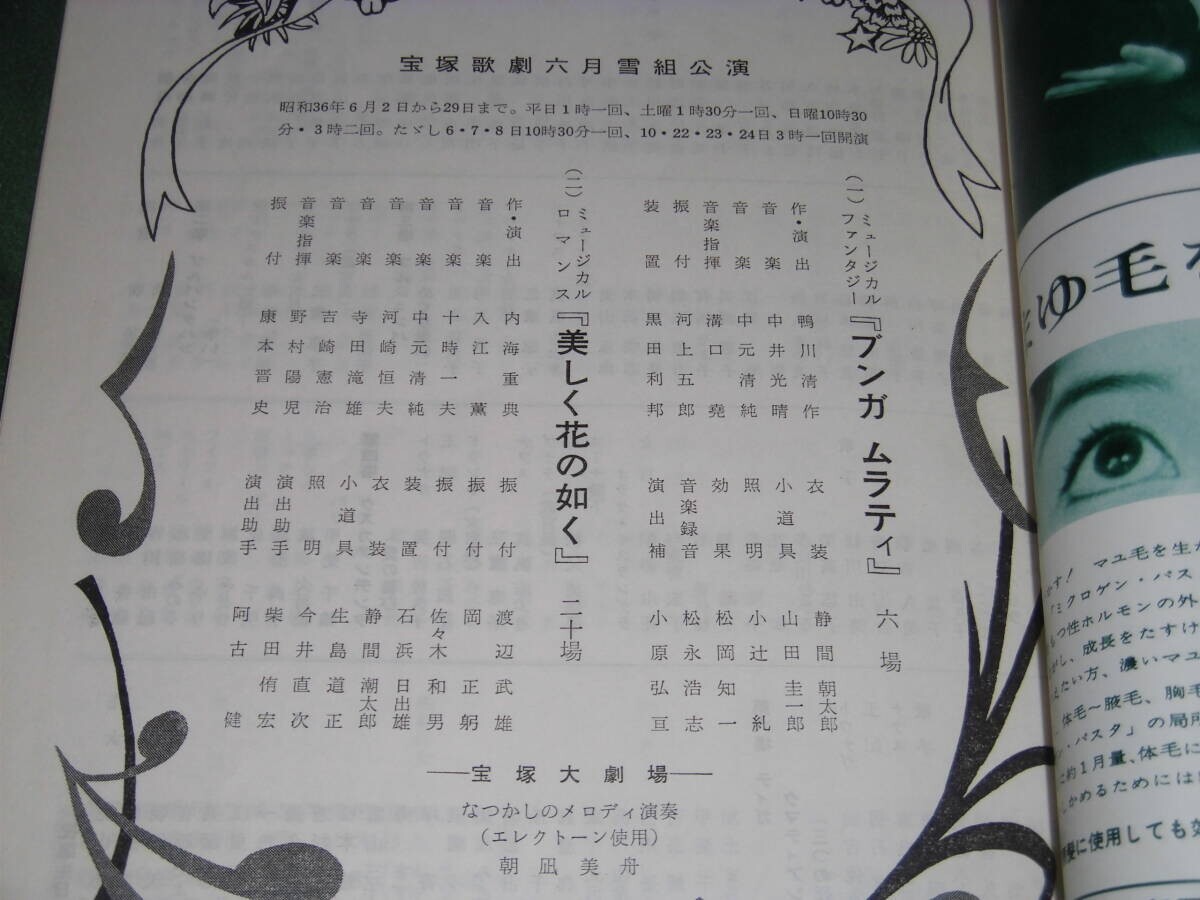 宝塚歌劇六月雪組公演
昭和36年6月2日から29日まで。平日1時一回、土曜1時30分一回、日曜10時30
分・3時二回。たゞし6・7・8日10時30分一回、10・22・23・24日3時一回開演
(一) ミュージカル ファンタジー 『ブンガ ムラティ』 六場
作・演出 鴨川清作
音楽 中井光晴
音楽 中元清純
音楽指揮 溝口堯
振付 河上五郎
装置 黒田利邦
衣装 静間朝太郎
小道具 山田圭一郎
照明 小辻糺
効果 松岡知一
音楽録音 松永浩志
演出補 小原弘亘
(二) ミュージカル ロマンス 『美しく花の如く』 二十場
作・演出 内海重典
音楽 入江薫
音楽 十時一夫
音楽 中元清純
音楽 河崎恒夫
音楽 寺田滝雄
音楽 吉崎憲治
音楽指揮 野村陽児
振付 康本晋史
振付 渡辺武雄
振付 岡正躬
振付 佐々木和男
装置 石浜日出雄
衣装 静間潮太郎
小道具 生島道正
照明 今井直次
演出助手 柴田侑宏
演出助手 阿古健
──宝塚大劇場──
なつかしのメロディ演奏
(エレクトーン使用)
朝凪美舟
ゆ毛
マユ毛を生か
ミクロゲン・パス
つ性ホルモンの外
し、成長をたすけ
たい方、濃いマユ
体毛〜腋毛、胸毛
ン・パスタ」の局所
約1月量、体毛に
かめるためには
に使用しても効